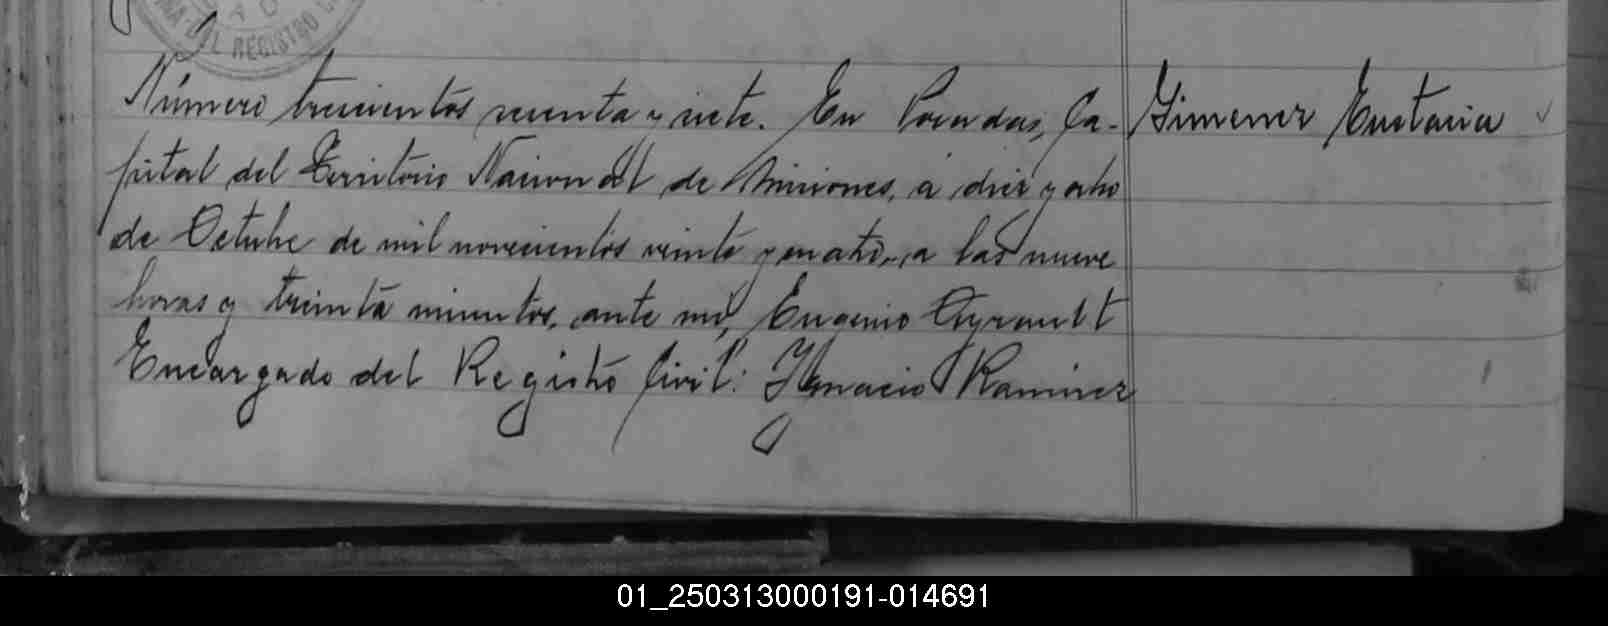 Número trescientos sesenta y siete. En Posadas, Ca-
pital del Territorio Nacional de Misiones, a diez y ocho
de Octubre de mil novecientos veinte y cuatro, a las nueve
horas y treinta minutos, ante mi, Eugenio Ayrault
Encargado del Registro Civil: Ignacio Ramirez
Gimenez Eustacia
DEL REGISTRO
01_250313000191-014691